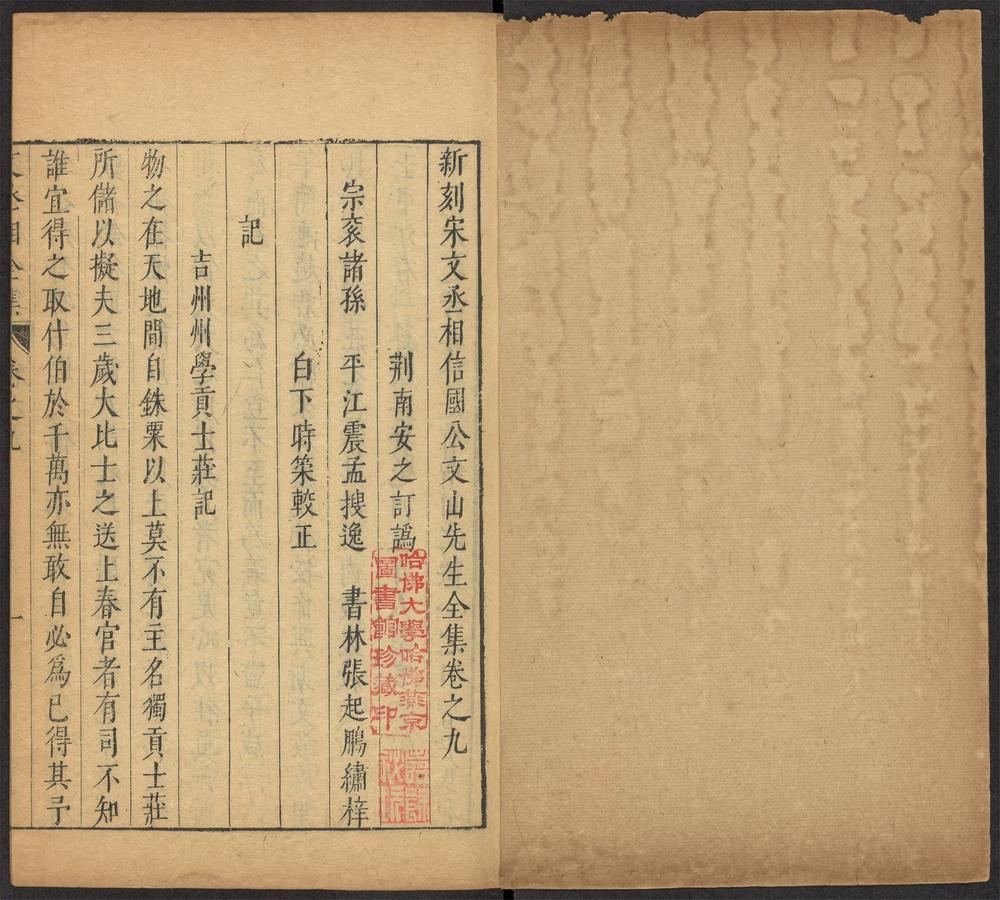 新刻宋文丞相信國公文山先生全集卷之九
荆南安之訂譌
宗衮諸孫　平江震孟搜逸　書林張起鵬繡梓
白下時策較正
記
吉州州學貢士莊記
物之在天地間自銖粟以上莫不有主名獨貢士莊
所儲以擬夫三歲大比士之送上春官者有司不知
誰宜得之取什伯於千萬亦無敢自必爲已得其予
卷之九
一
哈佛大學哈佛燕京
圖書館珍藏印